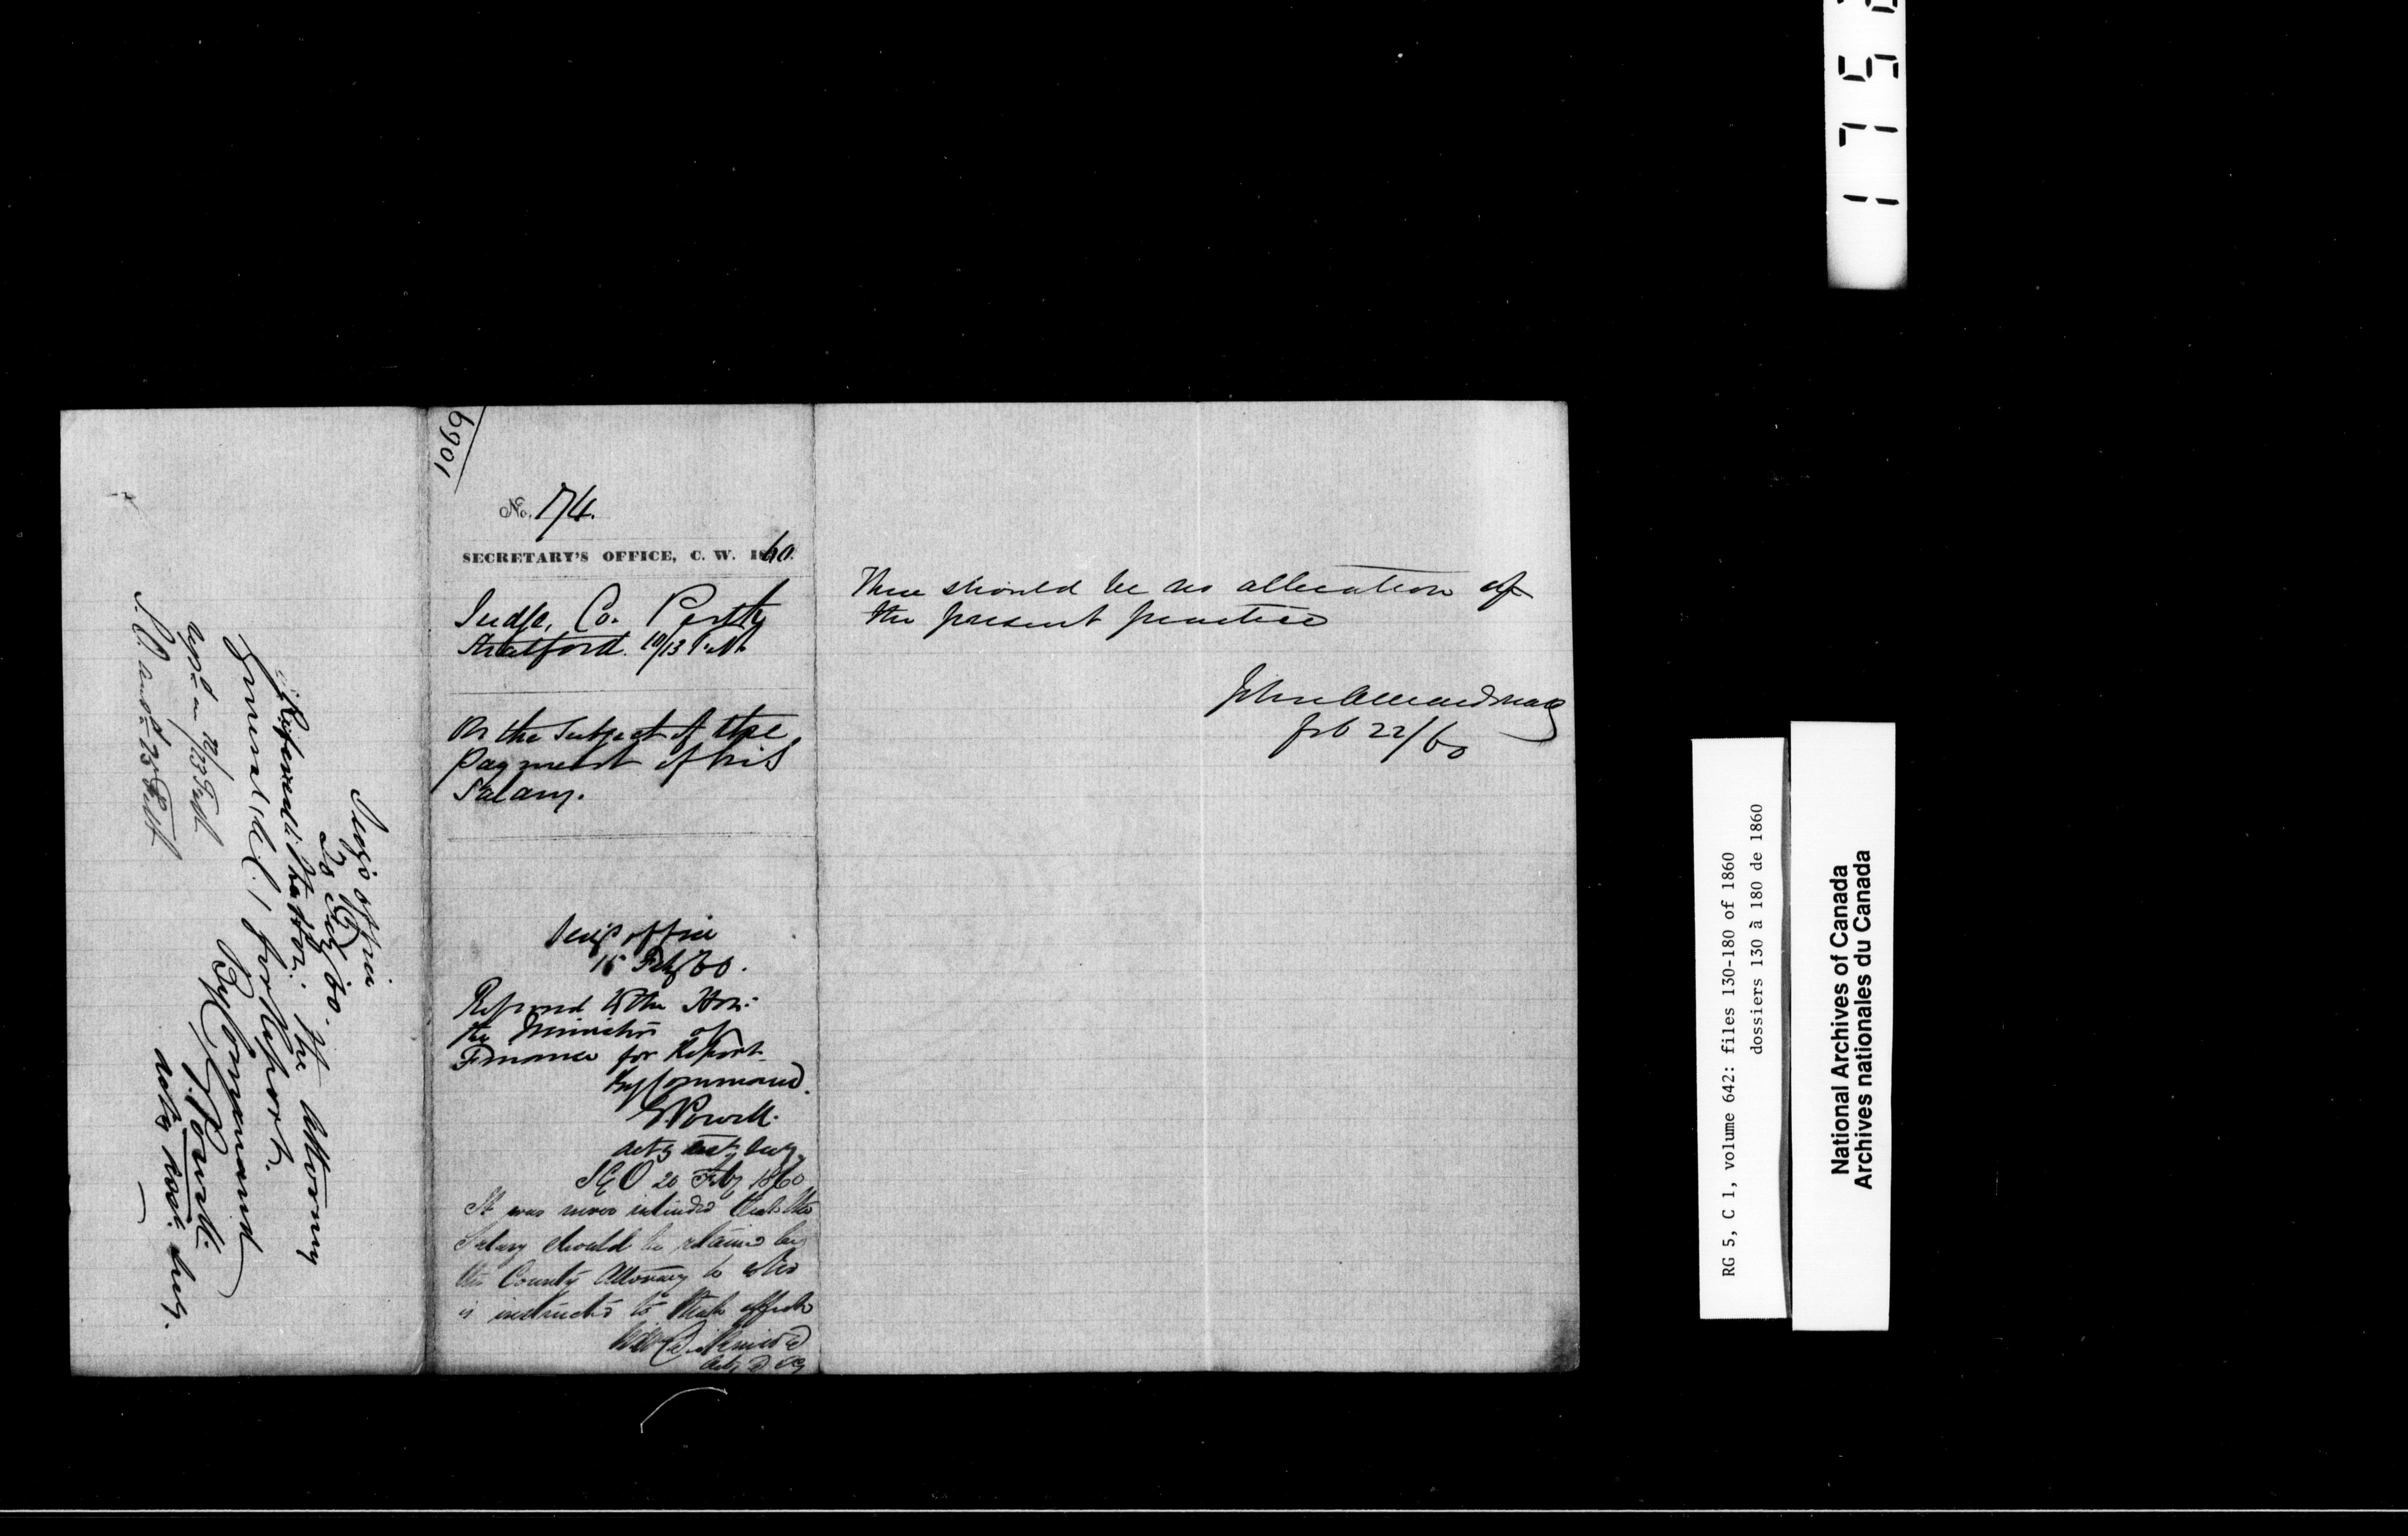 1069
No. 174.
SECRETARY'S OFFICE, C. W. 1860.
Judge, Co. Perth
Stratford. 10/13 Feb
On the Subject of the
payment of his
Salary.
Secys office
15 Feby 60.
Referred to the Hon:
the Minister of
Finance for Report
By Command.
E Powell.
Actg asst Secy.
I G O 20 Feby 1860
It was never intended that the
Salary should be retained by
the County Attorney
is instructed to that effect
There should be no alteration of
the present practice
John A Macdonald
Feb 22/60
Secys office
20 Feby /60.
Referred to the Hon: the Attorney
General (U.C.) for Report.
By Command
E Powell.
actg asst. Secy.
1 7 5
RG 5, C 1, volume 642: files 130-180 of 1860
dossiers 130 à 180 de 1860
National Archives of Canada
Archives nationales du Canada